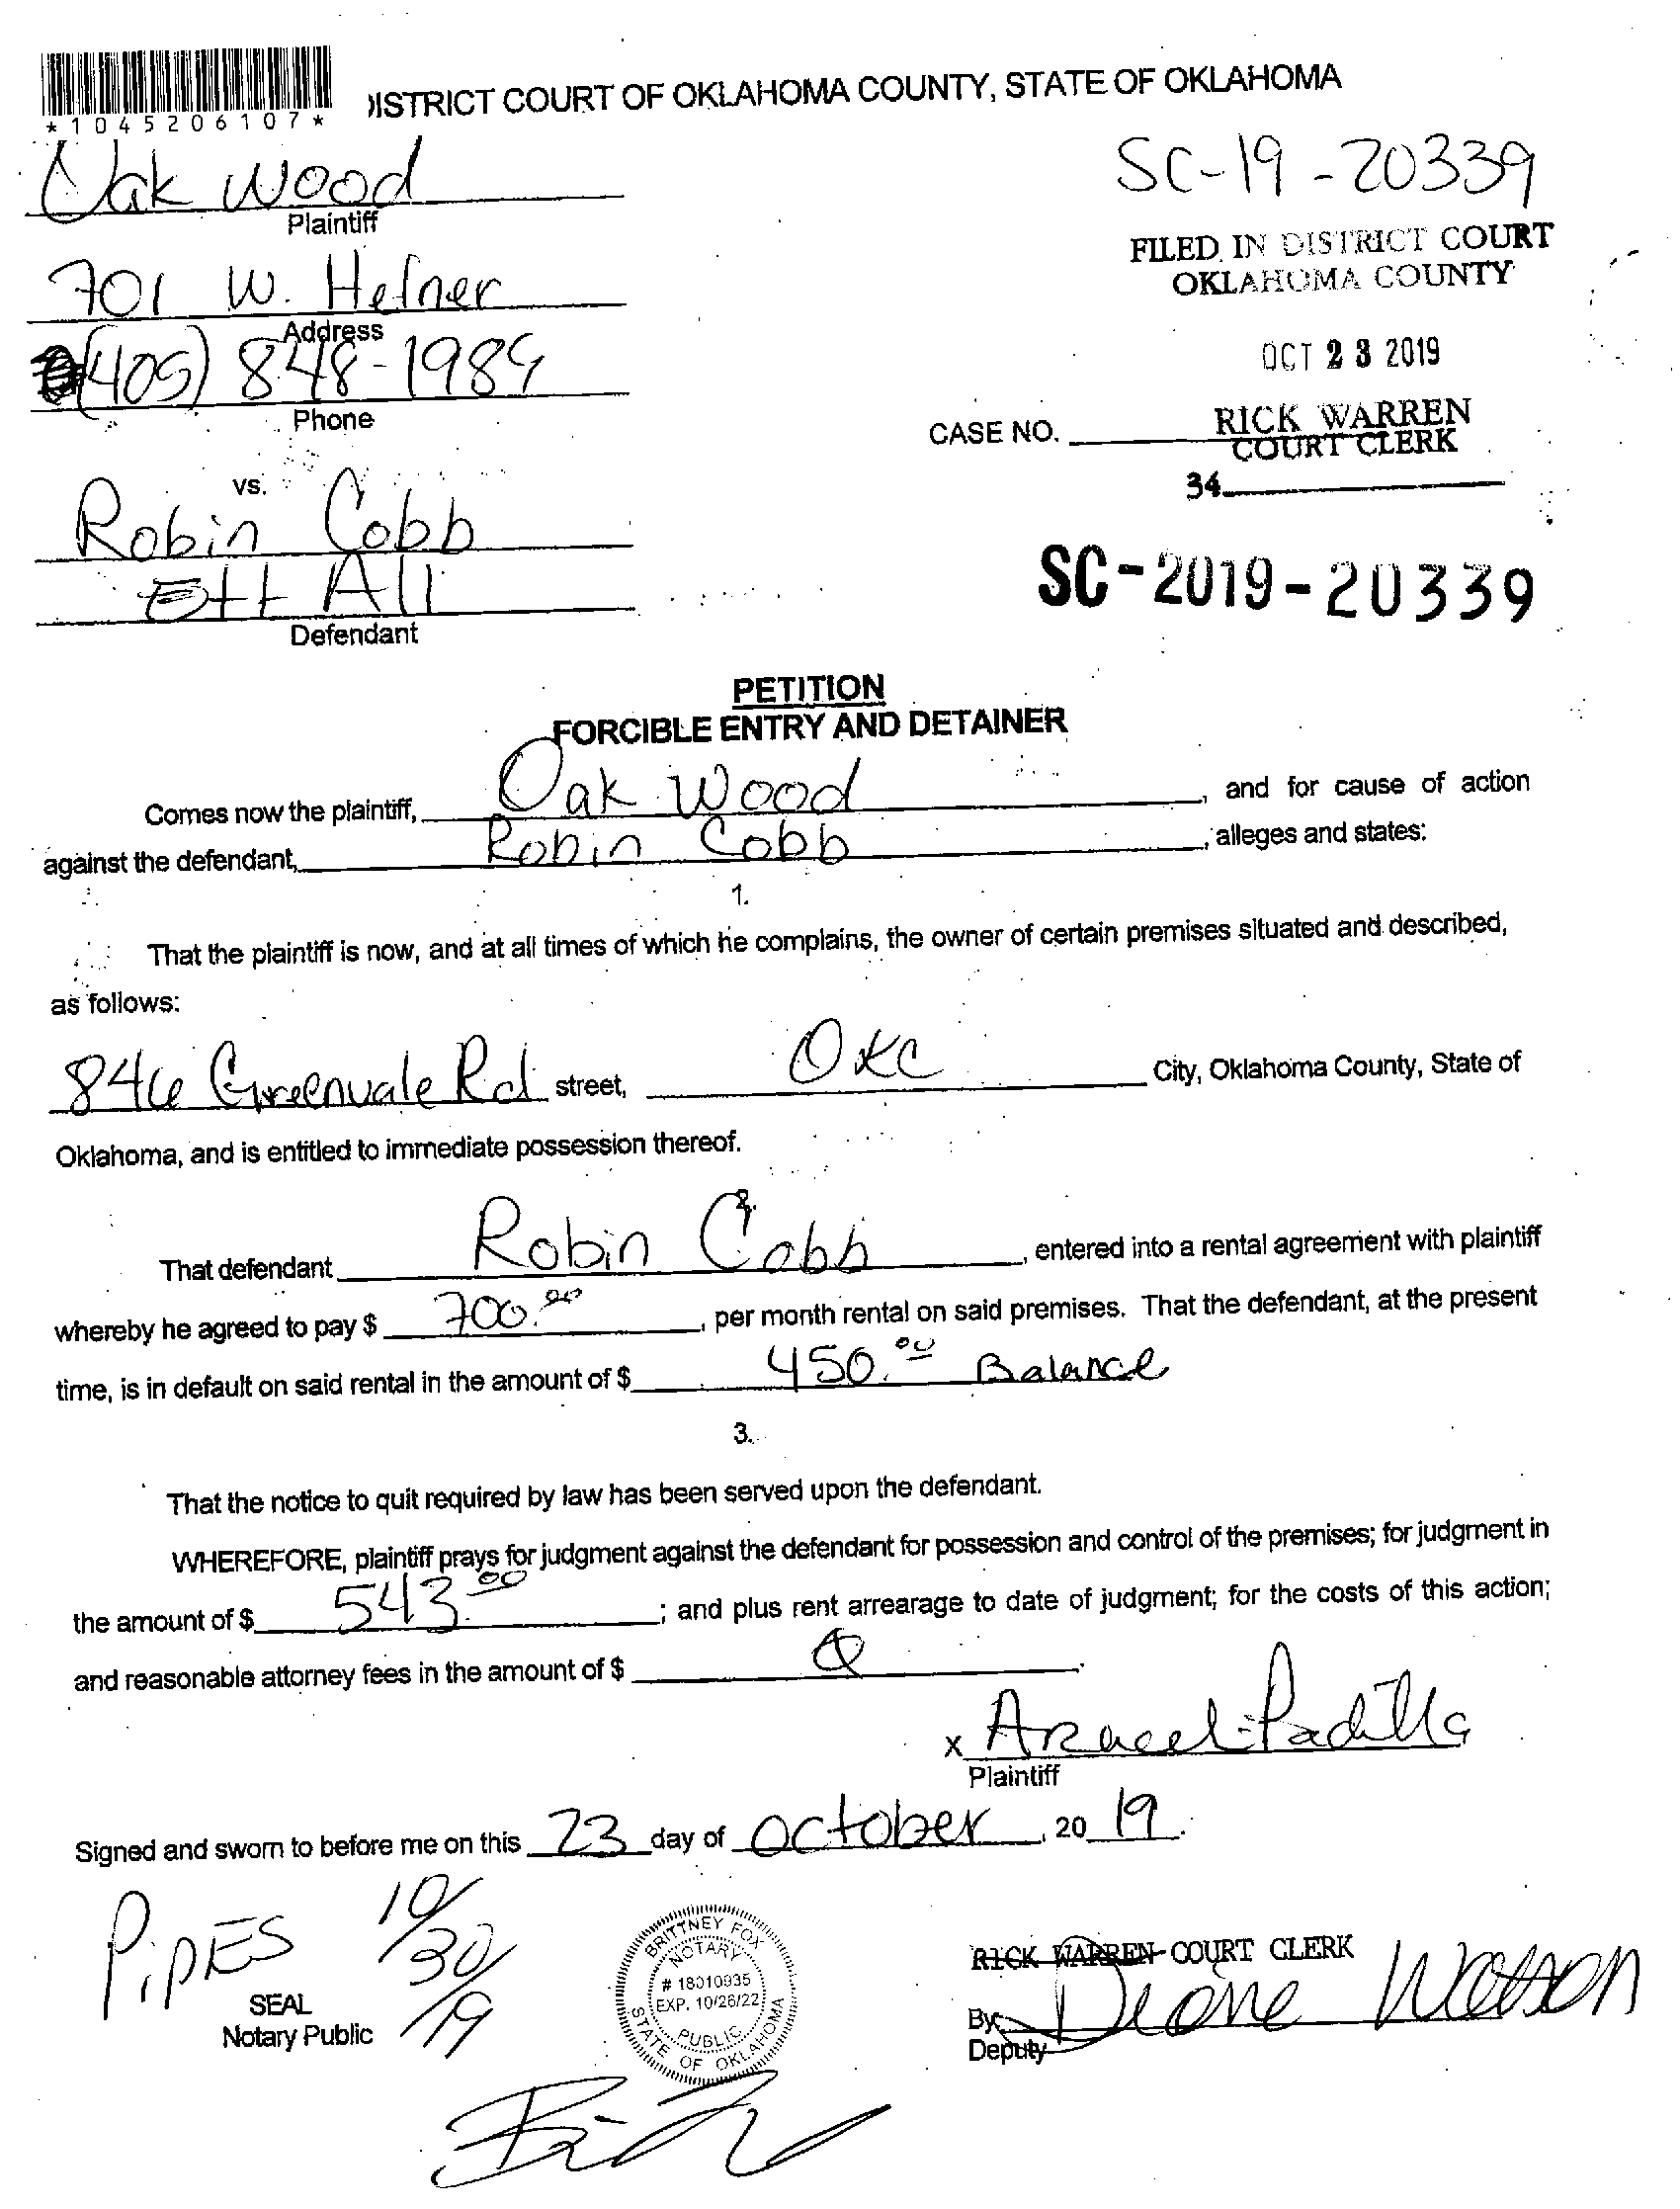 *1045206107*
ISTRICT COURT OF OKLAHOMA COUNTY, STATE OF OKLAHOMA
Oak Wood
Plaintiff
SC-19-20339
FILED IN DISTRICT COURT
OKLAHOMA COUNTY
701 W. Hefner
Address
(405) 848-1989
Phone
OCT 23 2019
CASE NO.
RICK WARREN
COURT CLERK
34
vs.
Robin Cobb
Ett All
Defendant
SC-2019-20339
PETITION
FORCIBLE ENTRY AND DETAINER
Comes now the plaintiff, Oak Wood, and for cause of action
against the defendant, Robin Cobb, alleges and states:
1.
That the plaintiff is now, and at all times of which he complains, the owner of certain premises situated and described,
as follows:
846 Greenvale Rd street, OKC City, Oklahoma County, State of
Oklahoma, and is entitled to immediate possession thereof.
2.
That defendant Robin Cobb, entered into a rental agreement with plaintiff
whereby he agreed to pay $ 700.00, per month rental on said premises. That the defendant, at the present
time, is in default on said rental in the amount of $ 450.00 Balance
3.
That the notice to quit required by law has been served upon the defendant.
WHEREFORE, plaintiff prays for judgment against the defendant for possession and control of the premises; for judgment in
the amount of $ 543.00; and plus rent arrearage to date of judgment; for the costs of this action;
and reasonable attorney fees in the amount of $
x Araceli Padilla
Plaintiff
Signed and sworn to before me on this 23 day of October, 20 19.
PiPES 10/30/19
SEAL
Notary Public
BRITTNEY FOX
NOTARY
# 18010935
EXP. 10/26/22
PUBLIC
STATE OF OKLAHOMA
RICK WARREN COURT CLERK
By: Diane Watson
Deputy